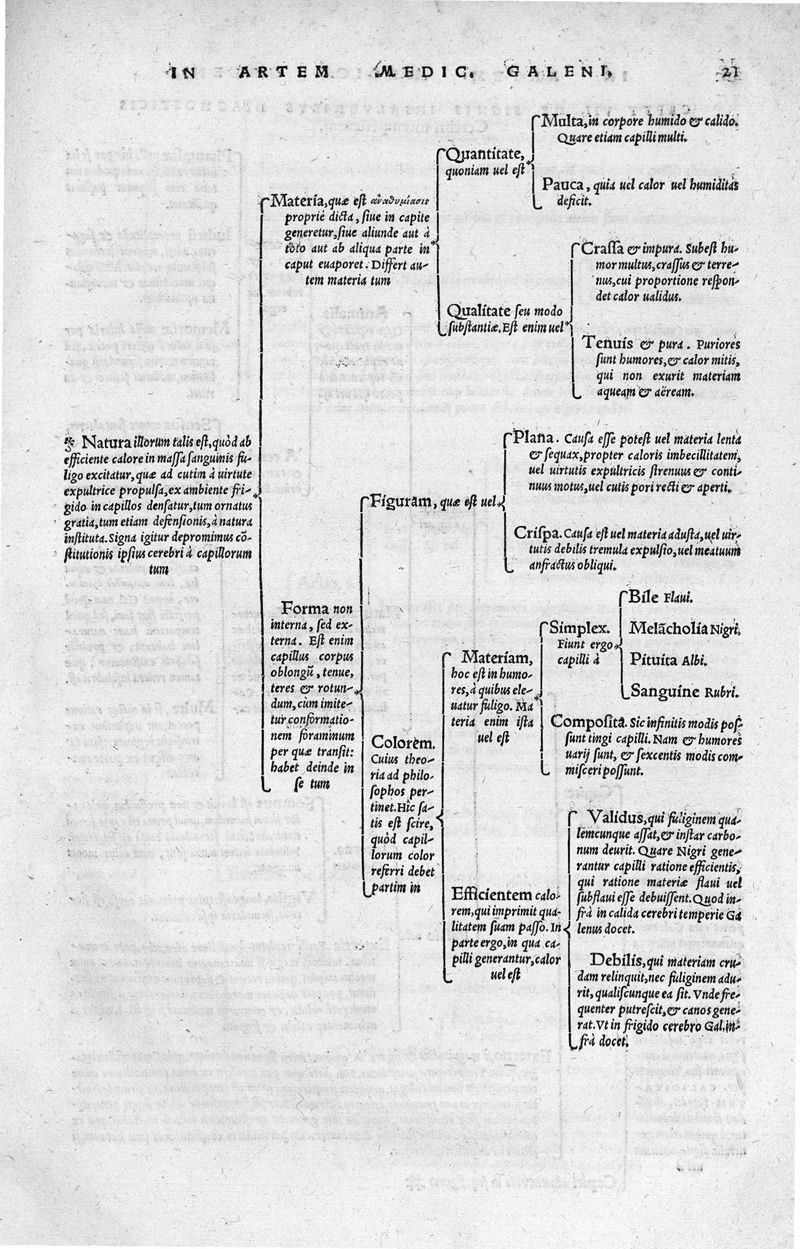 IN ARTEM MEDIC. GALENI. 21
❧ Natura illorum talis est, quòd ab
efficiente calore in massa sanguinis fu-
ligo excitatur, quæ ad cutim à uirtute
expultrice propulsa, ex ambiente fri-
gido in capillos densatur, tum ornatus
gratia, tum etiam defensionis, à natura
instituta. Signa igitur depromimus cō-
stitutionis ipsius cerebri à capillorum
tum
Materia, quæ est ἀναθυμίασις
propriè dicta, siue in capite
generetur, siue aliunde aut à
toto aut ab aliqua parte in
caput euaporet. Differt au-
tem materia tum
Quantitate,
quoniam uel est
Multa, in corpore humido & calido.
Quare etiam capilli multi.
Pauca, quia uel calor uel humiditas
deficit.
Qualitate seu modo
substantiæ. Est enim uel
Crassa & impura. Subest hu-
mor multus, crassus & terre-
nus, cui proportione respon-
det calor ualidus.
Tenuis & pura. Puriores
sunt humores, & calor mitis,
qui non exurit materiam
aqueam & aëream.
Forma non
interna, sed ex-
terna. Est enim
capillus corpus
oblongū, tenue,
teres & rotun-
dum, cùm imite-
tur conformatio-
nem foraminum
per quæ transit:
habet deinde in
se tum
Figuram, quæ est uel
Plana. Causa esse potest uel materia lenta
& sequax, propter caloris imbecillitatem,
uel uirtutis expultricis strenuus & conti-
nuus motus, uel cutis pori recti & aperti.
Crispa. Causa est uel materia adusta, uel uir-
tutis debilis tremula expulsio, uel meatuum
anfractus obliqui.
Colorem.
Cuius theo-
ria ad philo-
sophos per-
tinet. Hìc sa-
tis est scire,
quòd capil-
lorum color
referri debet
partim in
Materiam,
hoc est in humo-
res, à quibus ele-
uatur fuligo. Ma
teria enim ista
uel est
Simplex.
Fiunt ergo
capilli à
Bile Flaui.
Melācholia Nigri.
Pituita Albi.
Sanguine Rubri.
Composita. Sic infinitis modis pos-
sunt tingi capilli. Nam & humores
uarij sunt, & sexcentis modis com-
misceri possunt.
Efficientem calo-
rem, qui imprimit qua-
litatem suam passo. In
parte ergo, in qua ca-
pilli generantur, calor
uel est
Validus, qui fuliginem qua-
lemcunque assat, & instar carbo-
num deurit. Quare Nigri gene-
rantur capilli ratione efficientis,
qui ratione materiæ flaui uel
subflaui esse debuissent. Quod in-
frà in calida cerebri temperie Ga
lenus docet.
Debilis, qui materiam cru-
dam relinquit, nec fuliginem adu-
rit, qualiscunque ea sit. Vnde fre-
quenter putrescit, & canos gene-
rat. Vt in frigido cerebro Gal. in-
frà docet.